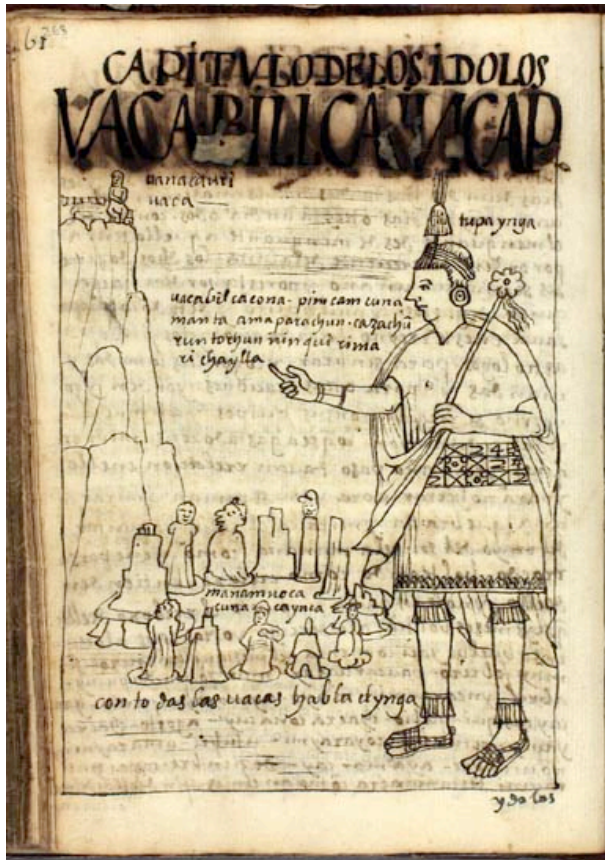 61 263
CAPITVLO DE LOS IDOLOS
VACA BILLCA INCAP
uanacauri
uaca
tupa ynga
uacabilcacona · pim camcuna
manta ama parachun cazachũ
runtochun ninqui rima
ri chaylla
manam noca
cuna ca ynca
con todas las uacas habla el ynga
ydolos